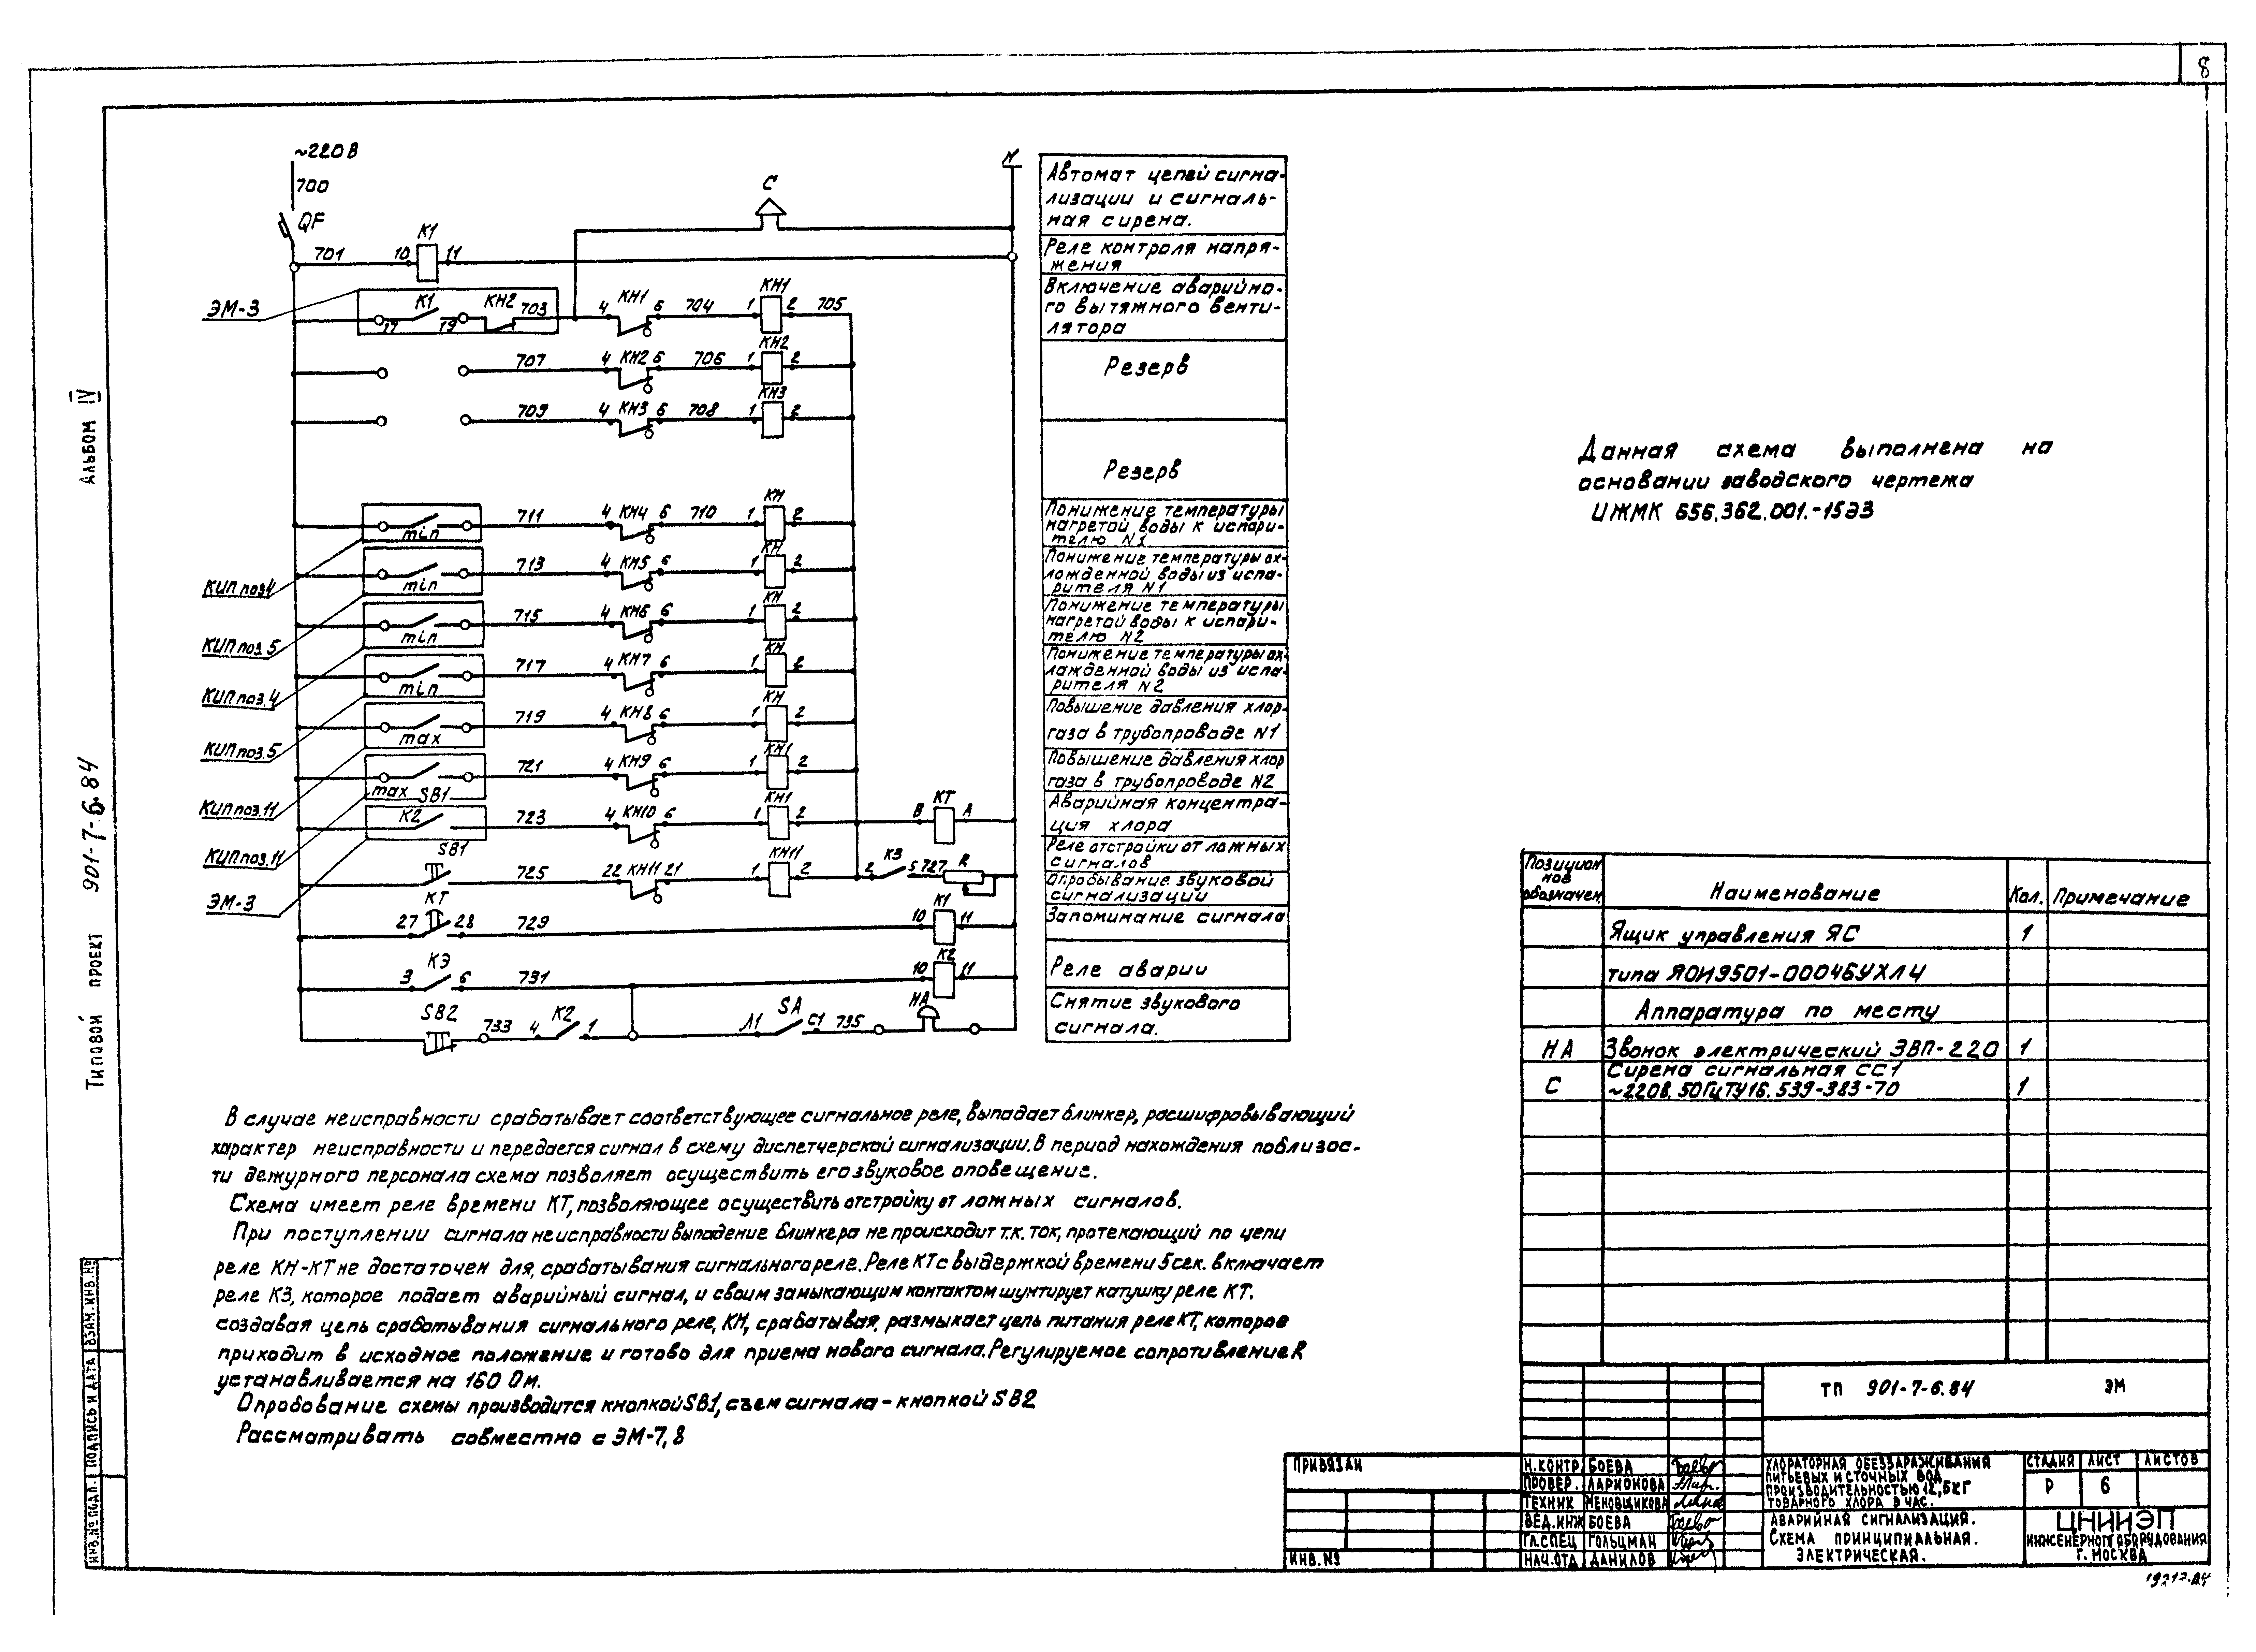 8
~220В
700
QF
701
10
К1
11
С
N
ЭМ-3
К1
КН2
17
19
703
4 КН1 6
704
1 КН1 2
705
707
4 КН2 6
706
1 КН2 2
709
4 КН3 6
708
1 КН3 2
min
711
4 КН4 6
710
1 КН 2
min
713
4 КН5 6
1 КН 2
min
715
4 КН6 6
1 КН 2
min
717
4 КН7 6
1 КН 2
max
719
4 КН8 6
1 КН 2
max
721
4 КН9 6
1 КН1 2
SB1
К2
723
4 КН10 6
1 КН1 2
В КТ А
SB1
725
22 КН11 21
1 КН11 2
2 К3 5
727
R
КТ
27 28
729
10 К1 11
КЭ
3 6
731
10 К2 11
SB2
733
4 К2 1
Л1 SA С1
735
НА
КИП поз4
КИП поз.5
КИП поз.4
КИП поз.5
КИП поз.11
КИП поз.11
ЭМ-3
Автомат цепей сигна-
лизации и сигналь-
ная сирена.
Реле контроля напря-
жения
Включение аварийно-
го вытяжного венти-
лятора
Резерв
Резерв
Понижение температуры
нагретой воды к испари-
телю N1
Понижение температуры ох-
лажденной воды из испа-
рителя N1
Понижение температуры
нагретой воды к испари-
телю N2
Понижение температуры ох
лажденной воды из испа-
рителя N2
Повышение давления хлор-
газа в трубопроводе N1
Повышение давления хлор
газа в трубопроводе N2
Аварийная концентра-
ция хлора
Реле отстройки от ложных
сигналов
Опробывание звуковой
сигнализации
Запоминание сигнала
Реле аварии
Снятие звукового
сигнала.
Данная схема выполнена на
основании заводского чертежа
ИЖМК 656.362.001.-15Э3
В случае неисправности срабатывает соответствующее сигнальное реле, выпадает блинкер, расшифровывающий
характер неисправности и передается сигнал в схему диспетчерской сигнализации. В период нахождения поблизос-
ти дежурного персонала схема позволяет осуществить его звуковое оповещение.
Схема имеет реле времени КТ, позволяющее осуществить отстройку от ложных сигналов.
При поступлении сигнала неисправности выпадение блинкера не происходит т.к. ток, протекающий по цепи
реле КН-КТ не достаточен для, срабатывания сигнального реле. Реле КТ с выдержкой времени 5 сек. включает
реле К3, которое подает аварийный сигнал, и своим замыкающим контактом шунтирует катушку реле КТ.
создавая цепь срабатывания сигнального реле, КН, срабатывая, размыкает цепь питания реле КТ, которое
приходит в исходное положение и готово для приема нового сигнала. Регулируемое сопротивление R
устанавливается на 160 Ом.
Опробование схемы производится кнопкой SB1, съем сигнала - кнопкой SB2
Рассматривать совместно с ЭМ-7, 8
Позицион
нов
обозначен
Наименование
Кол.
Примечание
Ящик управления ЯС
1
типа ЯОИ9501-0004БУХЛ4
Аппаратура по месту
НА
Звонок электрический ЗВП-220
1
С
Сирена сигнальная СС1
~220В, 50Гц ТУ16.539-383-70
1
ТП 901-7-6.84
ЭМ
Привязан
Инв. №
Н.контр. Боева
Провер. Ларионова
Техник Меновщикова
Вед.инж Боева
Гл.спец Гольцман
Нач.отд Данилов
Хлораторная обеззараживания
питьевых и сточных вод
производительностью 12,5кг
товарного хлора в час.
Аварийная сигнализация.
Схема принципиальная.
электрическая.
Стадия
Лист
Листов
Р
6
ЦНИИЭП
инженерного оборудования
г. Москва
Альбом IV
Типовой проект 901-7-6.84
Инв.№ подл.
Подпись и дата
Взам.инв.№